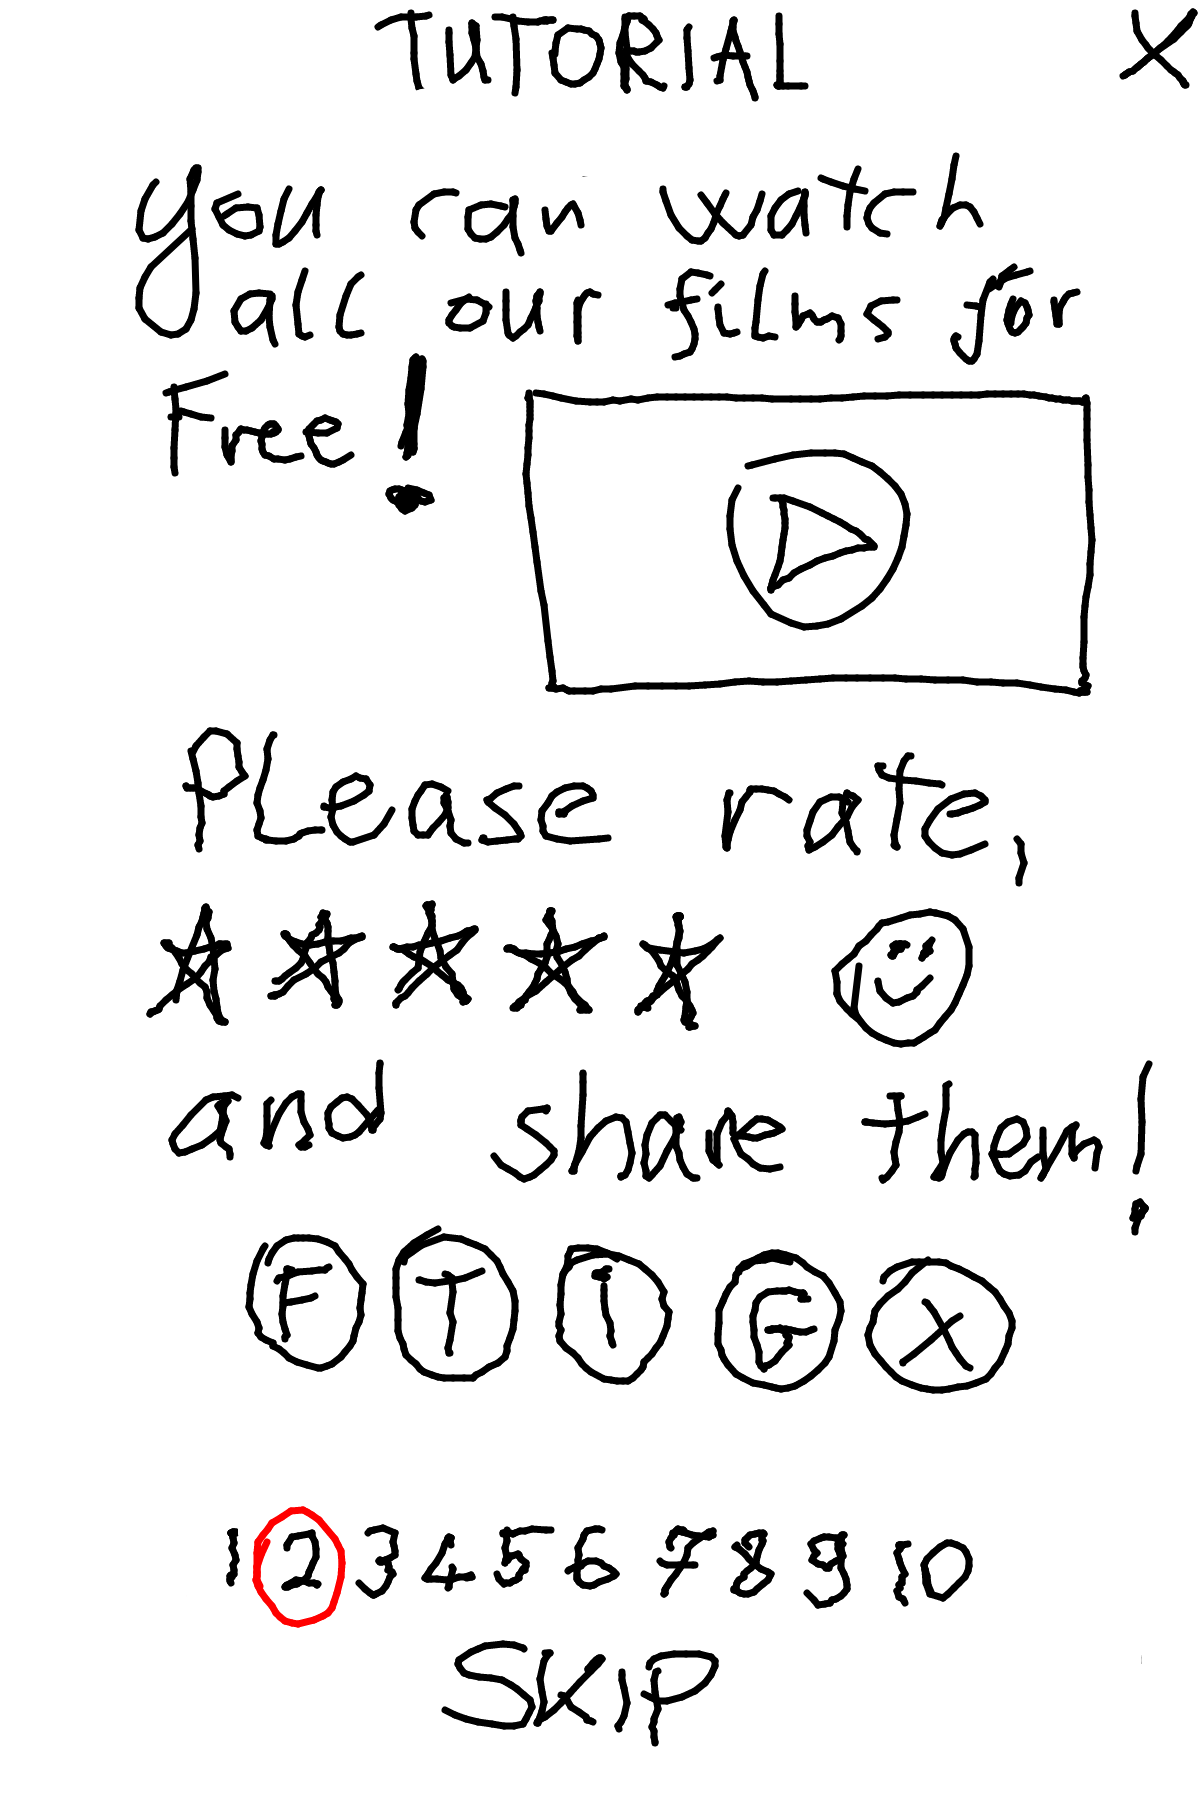 TUTORIAL X
you can watch
all our films for
Free!
Please rate,
and share them!
F T i G X
1 2 3 4 5 6 7 8 9 10
SKIP